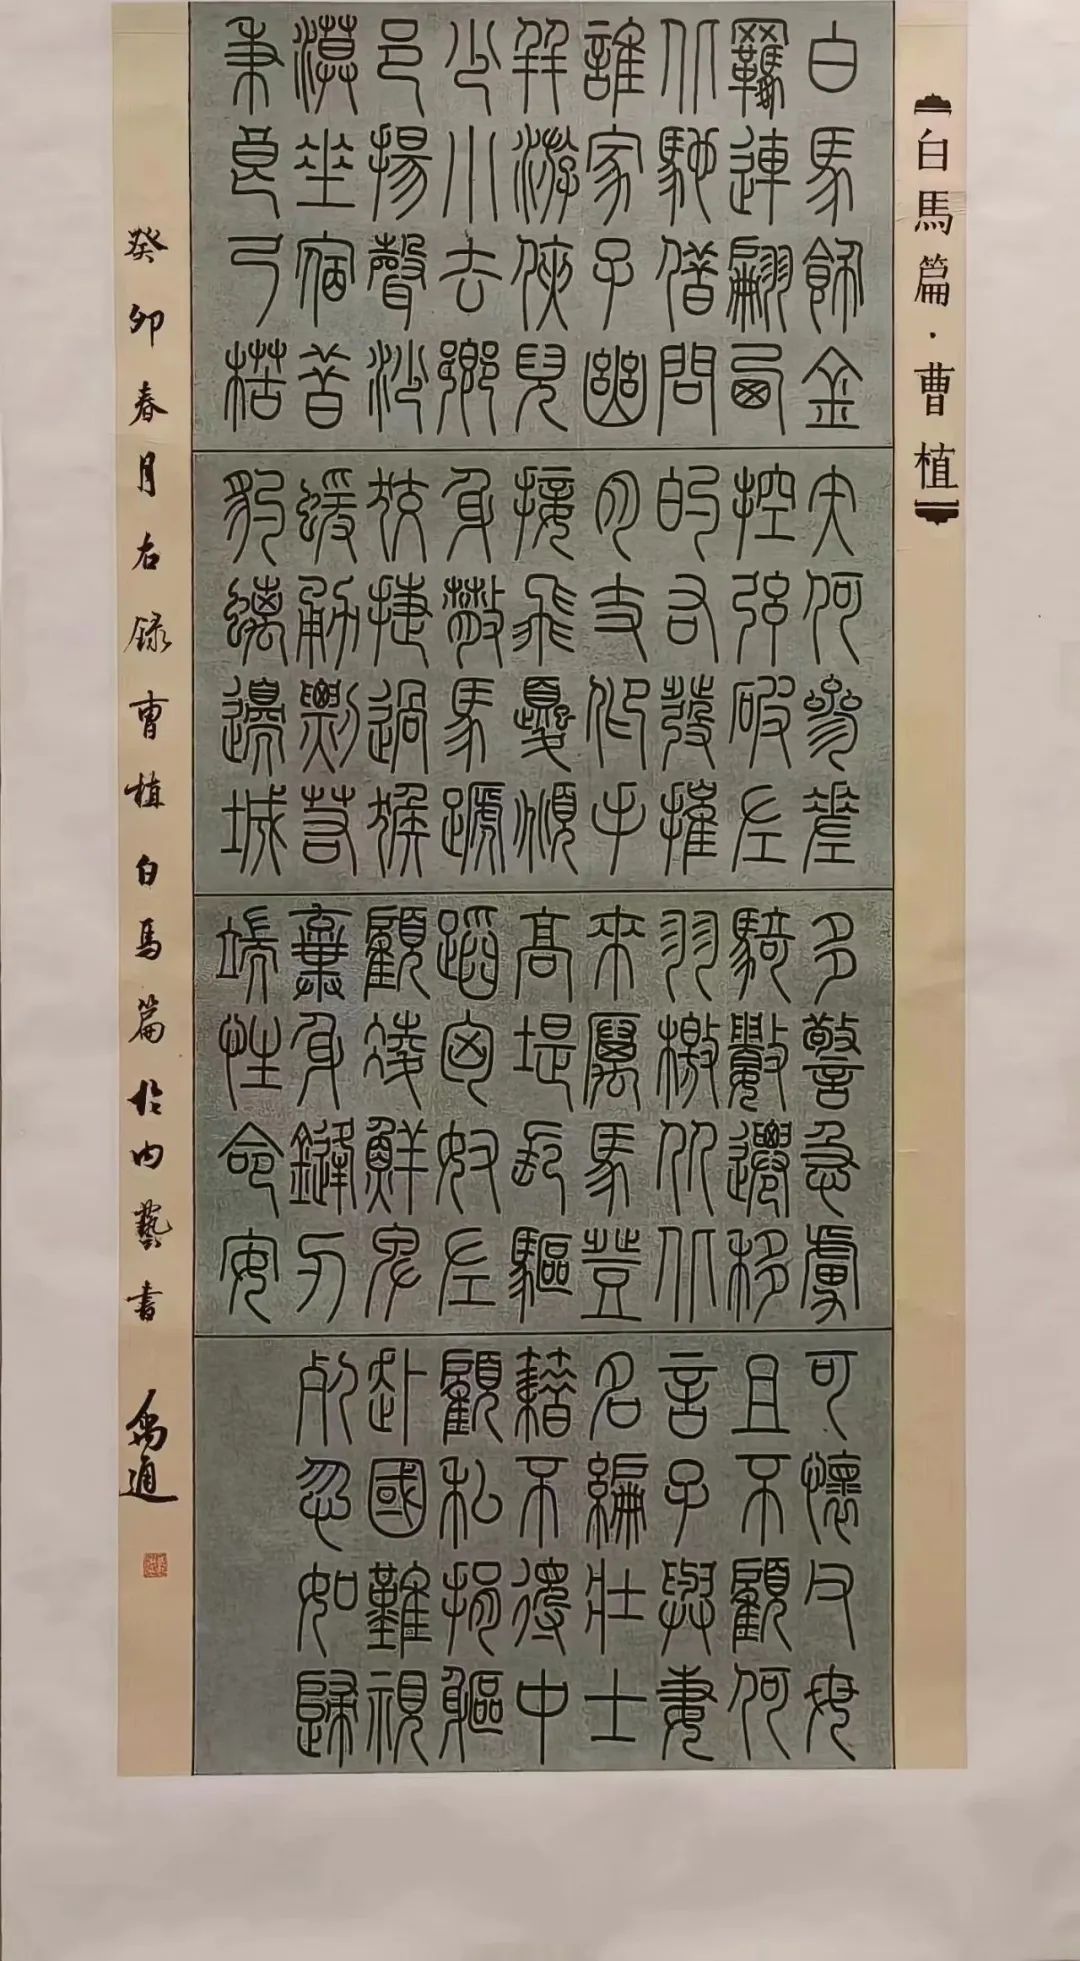 【白馬篇·曹植】
白馬飾金
羈連翩西
北馳借問
誰家子幽
并游俠兒
少小去鄉
邑揚聲沙
漠垂宿昔
秉良弓楛
矢何參差
控弦破左
的右發摧
月支仰手
接飛夒俯
身散馬蹏
狡捷過猴
蝯勇剽若
豹螭邊城
多警急虜
騎數遷移
羽檄从北
來厲馬登
高堤長驅
蹈匈奴左
顧凌鮮卑
棄身鋒刃
端性命安
可懷父母
且不顧何
言子與妻
名編壯士
籍不得中
顧私捐軀
赴國難視
死忽如歸
癸卯春月右錄曹植白馬篇於內藝書 禹通